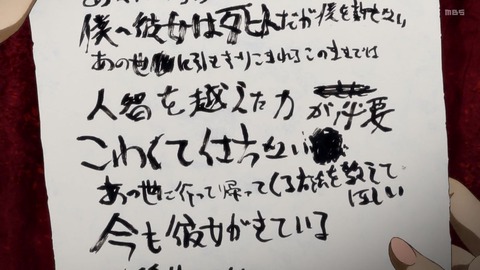 MBS
僕へ彼女は死んだが僕を許さない
あの世に引きずりこまれるこのままでは
人智を越えた力が必要
こわくて仕方ない
あの世に行って帰ってくる方法を教えて
ほしい
今も彼女がきている